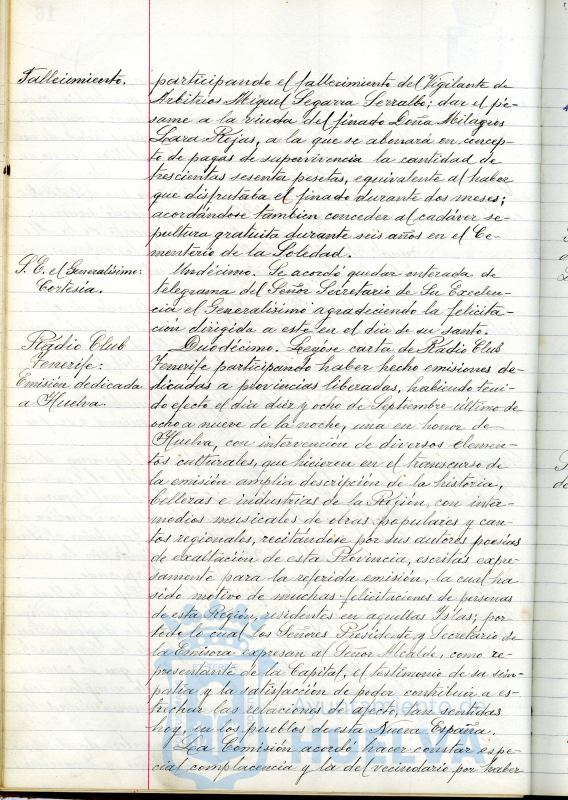 Fallecimiento.
participando el fallecimiento del Vigilante de
Arbitrios Miguel Segarra Serralbo; dar el pé-
same a la viuda del finado Doña Milagros
Lara Rojas, a la que se abonará en concep-
to de pagas de supervivencia la cantidad de
trescientas sesenta pesetas, equivalente al haber
que disfrutaba el finado durante dos meses;
acordándose tambien conceder al cadáver se-
pultura gratuita durante seis años en el Ce-
menterio de la Soledad.
S. E. el Generalísimo:
Cortesía.
Undécimo. Se acordó quedar enterada de
telegrama del Señor Secretario de Su Excelen-
cia el Generalísimo agradeciendo la felicita-
ción dirigida a este en el día de su santo.
Radio Club
Tenerife:
Emisión dedicada
a Huelva.
Duodécimo. Leyóse carta de Radio Club
Tenerife participando haber hecho emisiones de-
dicadas a provincias liberadas, habiendo teni-
do efecto el día diez y ocho de Septiembre último de
ocho a nueve de la noche, una en honor de
Huelva, con intervención de diversos elemen-
tos culturales, que hicieron en el transcurso de
la emisión amplia descripción de la historia,
bellezas e industrias de la Región, con inter-
medios musicales de obras populares y can-
tos regionales, recitándose por sus autores poesías
de exaltación de esta Provincia, escritas expre-
samente para la referida emisión, la cual ha
sido motivo de muchas felicitaciones de personas
de esta Región, residentes en aquellas Islas; por
todo lo cual los Señores Presidente y Secretario de
la Emisora expresan al Señor Alcalde, como re-
presentante de la Capital, el testimonio de su sim-
patía y la satisfacción de poder contribuir a es-
trechar las relaciones de afecto, tan sentidas
hoy, en los pueblos de esta Nueva España.
La Comisión acordó hacer constar espe-
cial complacencia y la del vecindario por haber
HUELVA